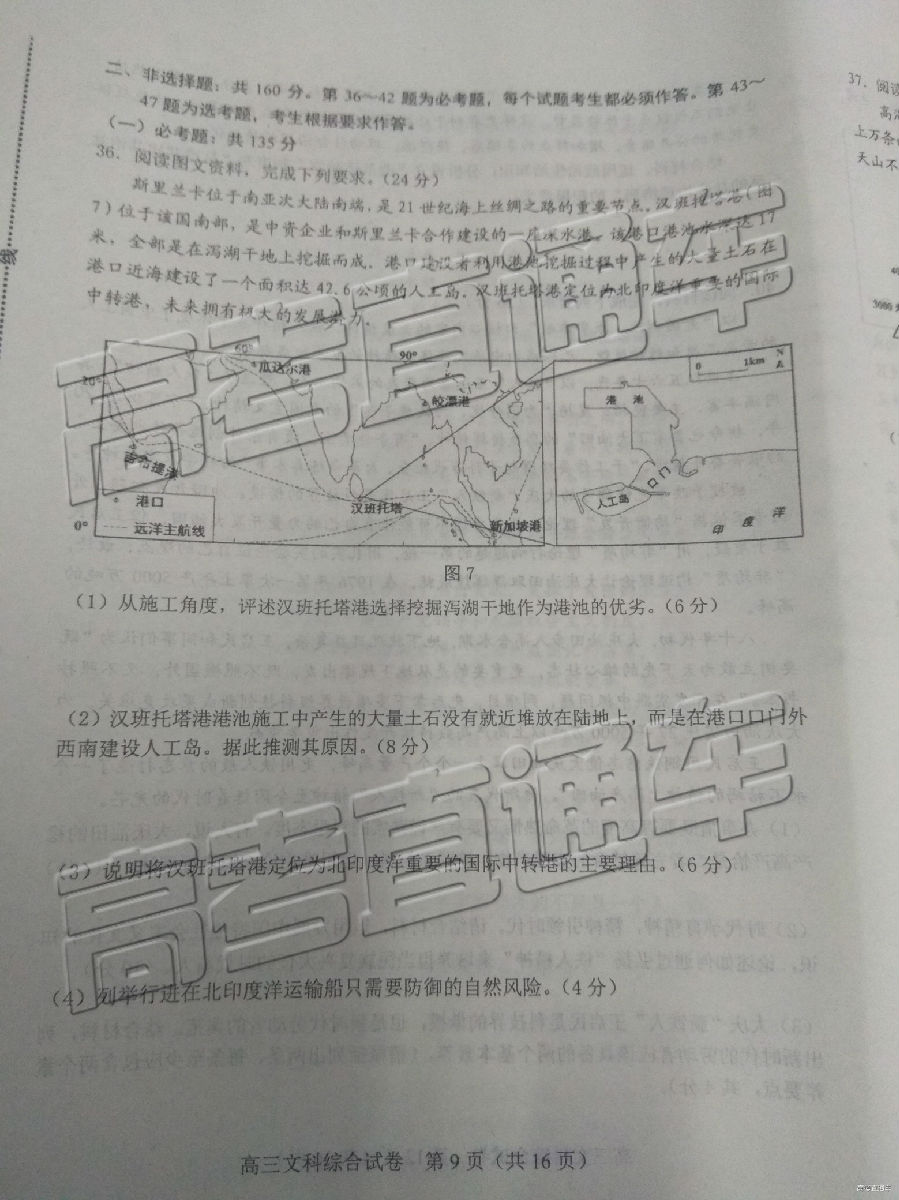 二、非选择题：共 160 分。第 36～42 题为必考题，每个试题考生都必须作答。第 43～
47 题为选考题，考生根据要求作答。
（一）必考题：共 135 分
36．阅读图文资料，完成下列要求。（24 分）
斯里兰卡位于南亚次大陆南端，是 21 世纪海上丝绸之路的重要节点。汉班托塔港（图
7）位于该国南部，是中资企业和斯里兰卡合作建设的一座深水港。该港口港池水深达 17
米，全部是在泻湖干地上挖掘而成。港口建设者利用港池挖掘过程中产生的大量土石在
港口近海建设了一个面积达 42.6 公顷的人工岛。汉班托塔港定位为北印度洋重要的国际
中转港，未来拥有极大的发展潜力。
60°
90°
20°
0°
瓜达尔港
皎漂港
吉布提港
汉班托塔
新加坡港
港口
远洋主航线
0 1km
N
港 池
人工岛
印 度 洋
图 7
（1）从施工角度，评述汉班托塔港选择挖掘泻湖干地作为港池的优劣。（6 分）
（2）汉班托塔港港池施工中产生的大量土石没有就近堆放在陆地上，而是在港口口门外
西南建设人工岛。据此推测其原因。（8 分）
（3）说明将汉班托塔港定位为北印度洋重要的国际中转港的主要理由。（6 分）
（4）列举行进在北印度洋运输船只需要防御的自然风险。（4 分）
高三文科综合试卷 第 9 页（共 16 页）
37．阅读
上万条
天山不
高考直通车
高考直通车